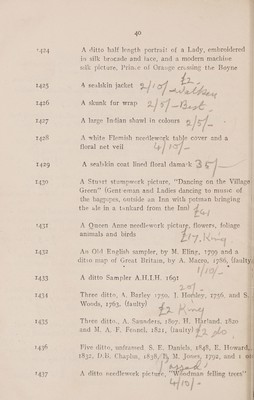 40
1424 A ditto half length portrait of a Lady, embroidered
in silk brocade and lace, and a modern machine
silk picture, Prince of Orange crossing the Boyne
1425 A sealskin jacket
1426 A skunk fur wrap 2/5/- Best
1427 A large Indian shawl in colours 2/5/-
1428 A white Flemish needlework table cover and a
floral net veil
1429 A sealskin coat lined floral damask
1430 A Stuart stumpwork picture, "Dancing on the Village
Green" (Gentleman and Ladies dancing to music of
the bagpipes, outside an Inn with potman bringing
the ale in a tankard from the Inn)
1431 A Queen Anne needlework picture, flowers, foliage
animals and birds £17. King
1432 An Old English sampler, by M. Eling, 1799 and a
ditto map of Great Britain, by A. Macro, 1786, (faulty)
1/10/-
1433 A ditto Sampler A.H.I.H. 1691
20/-
1434 Three ditto, A. Burley 1750, I. Horsley, 1756, and S.
Woods, 1765, (faulty) £2 King
1435 Three ditto, A. Saunders, 1807, H. Harland, 1820
and M. A. F. Feunel, 1821, (faulty) £2 do
1436 Five ditto, unframed S. E. Daniels, 1848, E. Howard,
1832, D. H. Chaplin, 1838, M. Jones, 1792, and 1
1437 A ditto needlework picture, "Woodman felling trees"
4/10/-